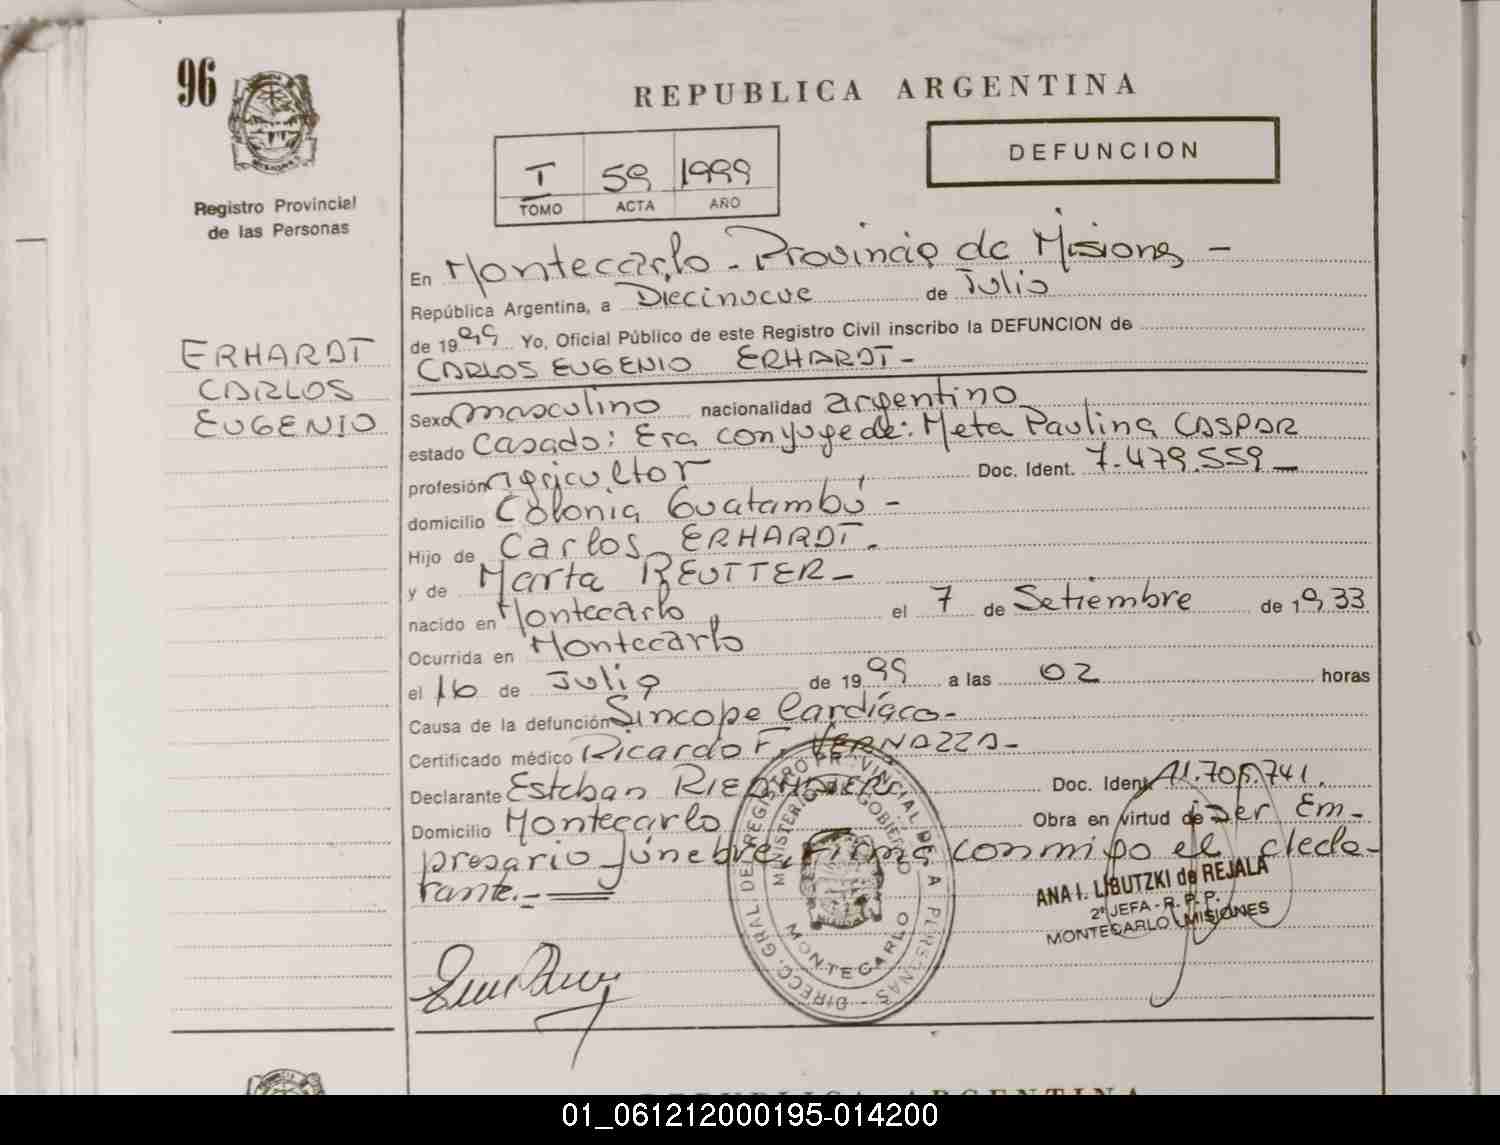 96
REPUBLICA ARGENTINA
DEFUNCION
I 59 1999
TOMO ACTA AÑO
Registro Provincial
de las Personas
ERHARDT
CARLOS
EUGENIO
En Montecarlo - Provincia de Misiones -
República Argentina, a Diecinueve de Julio
de 1999 Yo, Oficial Público de este Registro Civil inscribo la DEFUNCION de
CARLOS EUGENIO ERHARDT -
Sexo masculino nacionalidad argentino
estado Casado: Era conyuge de: Meta Paulina CASPAR
profesión agricultor Doc. Ident. 7.479.559 -
domicilio Colonia Guatambú -
Hijo de Carlos ERHARDT.
y de Marta REUTTER -
nacido en Montecarlo el 7 de Setiembre de 1933
Ocurrida en Montecarlo
el 16 de Julio de 1999 a las 02 horas
Causa de la defunción Sincope Cardíaco -
Certificado médico Ricardo F. VERNAZZA -
Declarante Esteban Doc. Ident.
Domicilio Montecarlo Obra en virtud de ser Em-
presario fúnebre, Firma conmigo el decla-
rante.-
ANA I. LIBUTZKI de REJALA
2ª JEFA - R. P. P.
MONTECARLO MISIONES
DIRECC. GRAL. DEL REGISTRO PROVINCIAL DE LAS PERSONAS
MINISTERIO DE GOBIERNO
MONTECARLO
REPUBLICA ARGENTINA
01_061212000195-014200